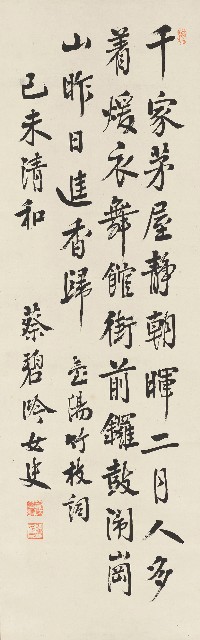 千家茅屋靜朝暉二月人多
着煖衣舞館街前鑼鼓鬧崗
山昨日進香歸 臺陽竹枝詞
己未清和 蔡碧吟女史